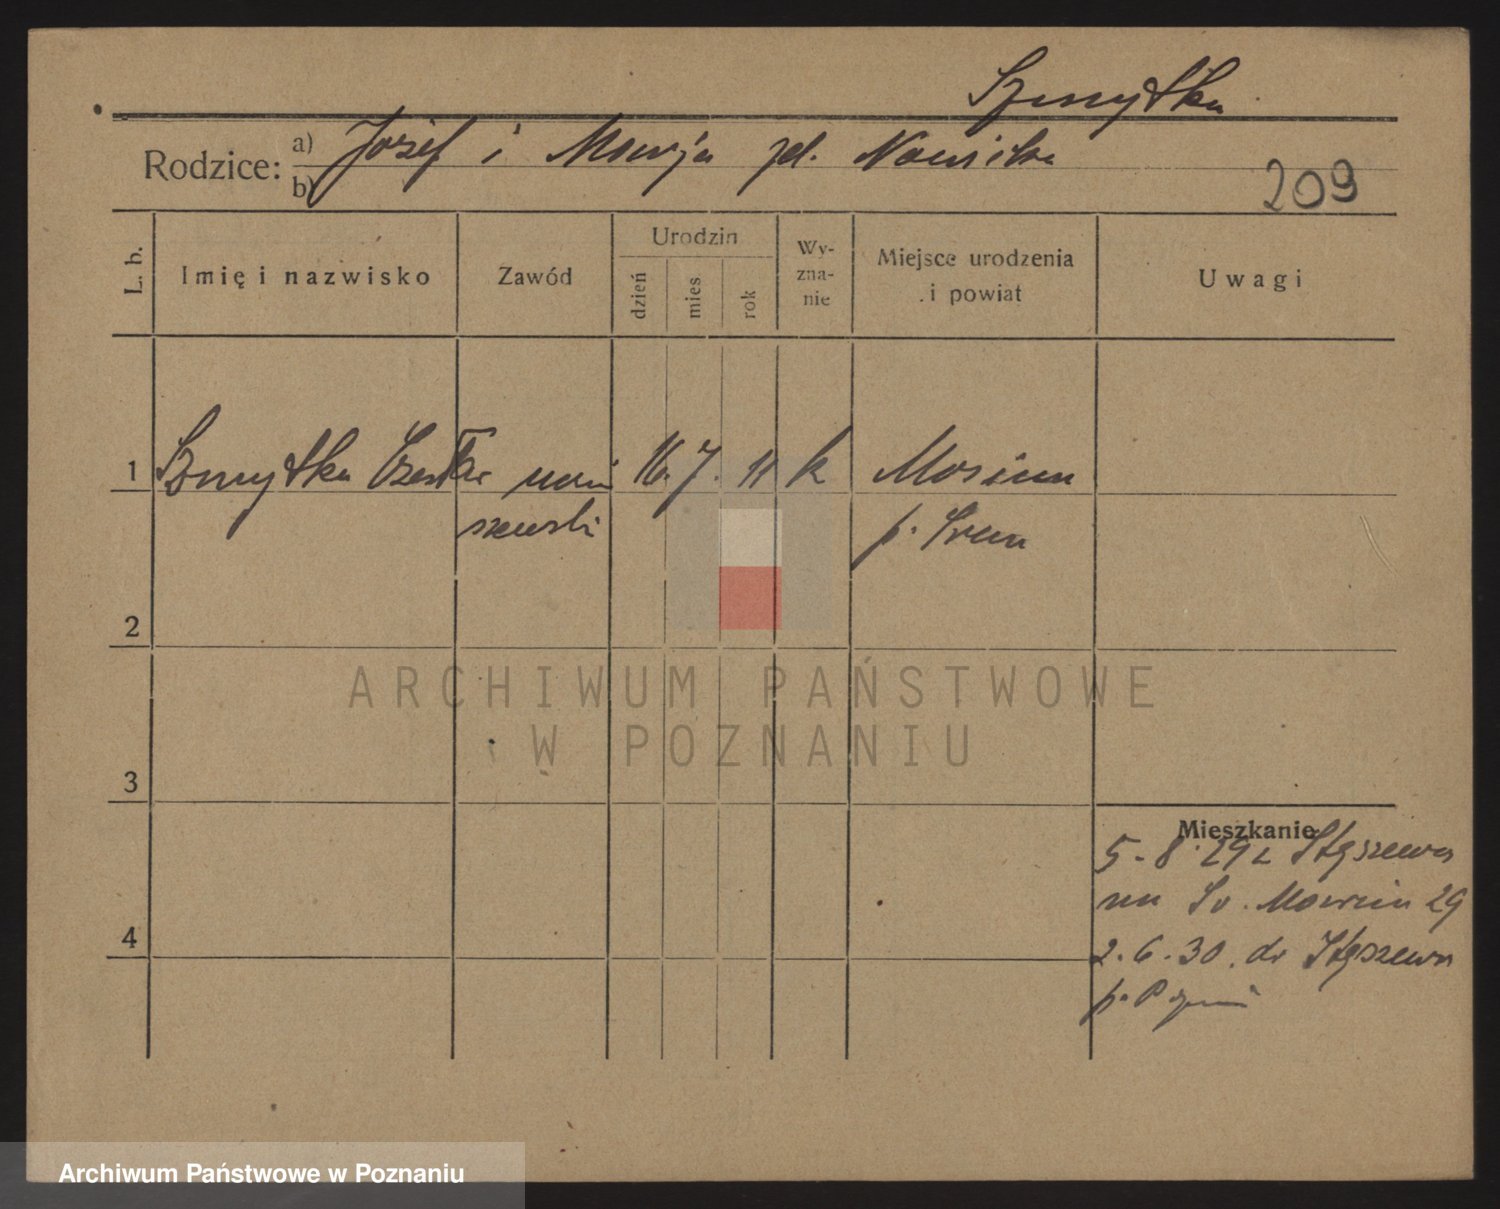 Szmytka
Rodzice: a) Józef i Maria zd. Nowicka
b)
209
L. b.
Imię i nazwisko
Zawód
Urodzin
dzień
mies
rok
Wy-
zna-
nie
Miejsce urodzenia
i powiat
Uwagi
1 Szmytka Czesław ucz. 16. 7. 11 k Mosina
szewski p. Śrem
2
3
4
Mieszkanie
5. 8. 29 z Stęszewa
na Św. Marcin 29
2. 6. 30. do Stęszewa
p. Poznań
ARCHIWUM PAŃSTWOWE
W POZNANIU
Archiwum Państwowe w Poznaniu